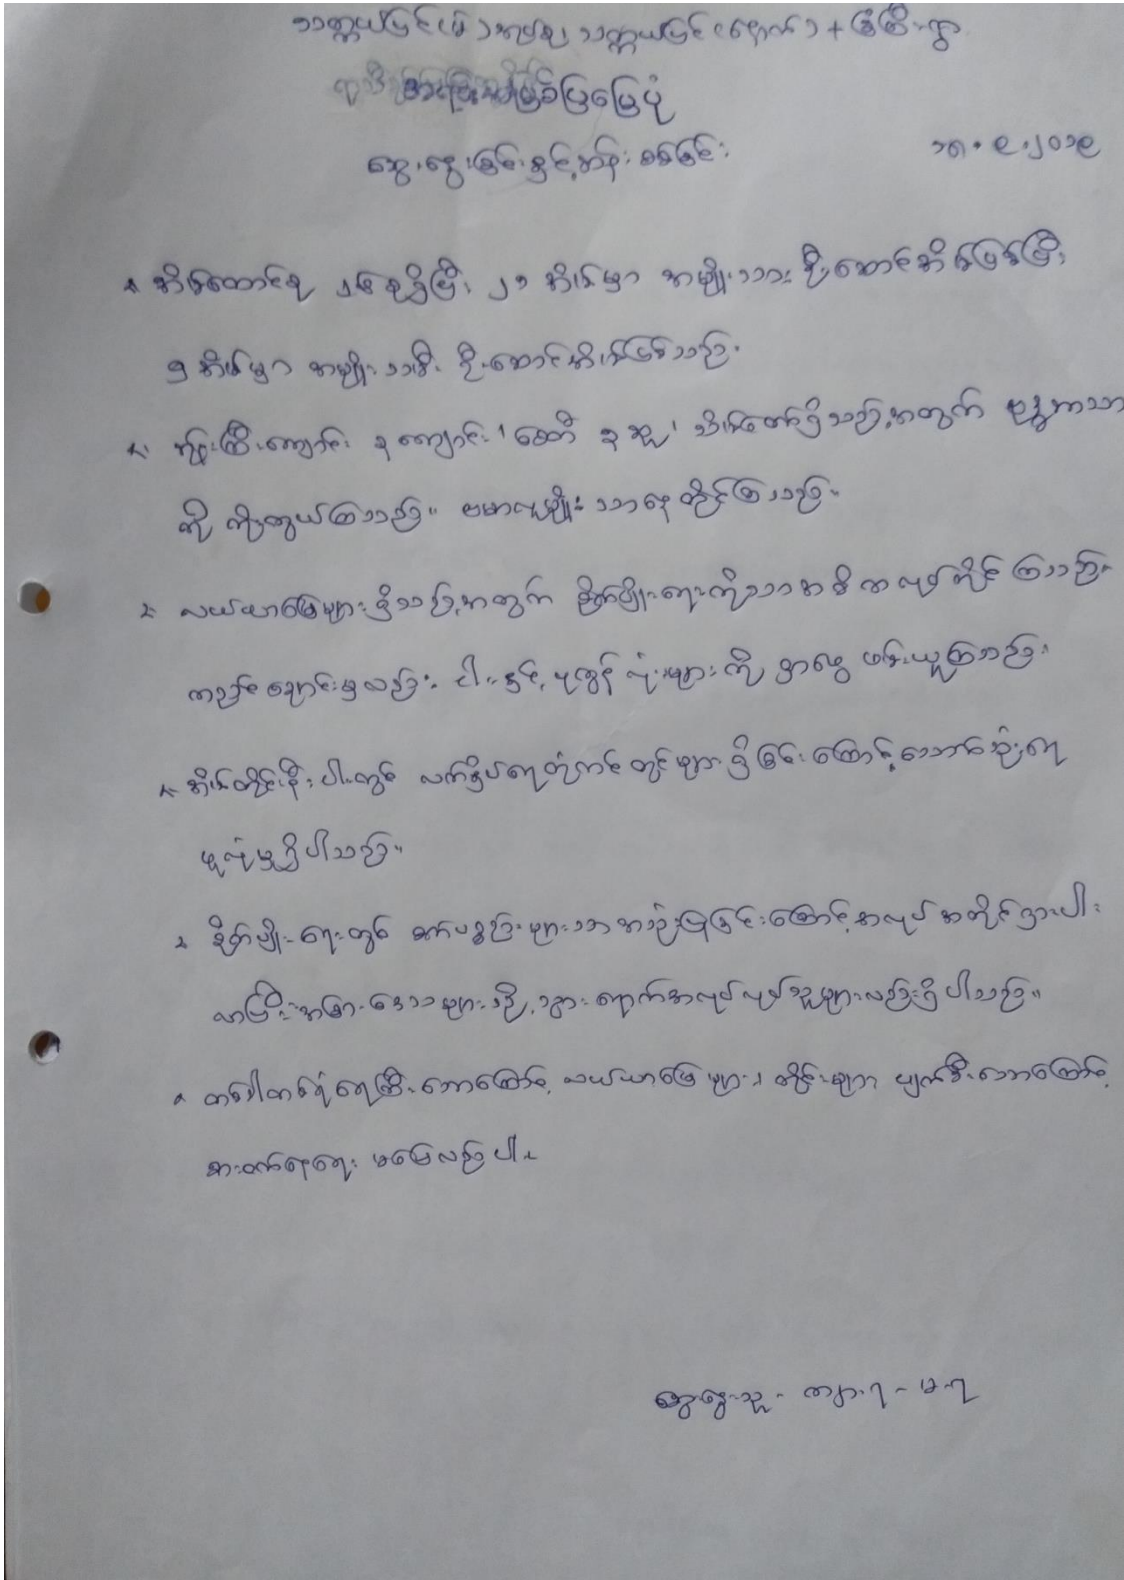 သတ္တယ်ပြင် (မ) အုပ်စု၊ သတ္တယ်ပြင် (နောက်) + ခြံကြီး ရွာ
ပြမြေပုံ
ဆွေးနွေးခြင်းနှင့် စစ်ခြင်း
၁၈.၉.၂၀၁၉
အိမ်ထောင်စု ရှိပြီး ၂၁ အိမ်မှာ အမျိုးသား ဦးဆောင်အိမ်ဖြစ်ပြီး
၅ အိမ်မှာ အမျိုးသမီး ဦးဆောင်အိမ်ဖြစ်သည်။
ဘုန်းကြီးကျောင်း ၃ ကျောင်း၊ စေတီ ၃ ဆူ၊ သိမ်တော်ရှိသည့်အတွက် ဗုဒ္ဓဘာသာ
ကို ကိုးကွယ်ကြသည်။ ဗမာလူမျိုး သာနေထိုင်ကြသည်။
လယ်ယာမြေများ ရှိသည့်အတွက် စိုက်ပျိုးရေးကိုသာအဓိကလုပ်ကိုင်ကြသည်။
ချောင်းမှလည်း ငါးနှင့် ပုစွန် များကို ရှာဖွေ ဖမ်းယူကြသည်။
အိမ်တိုင်းနီးပါးတွင် လက်နှိပ်ရေတုံကင်တွင်းများ ရှိခြင်းကြောင့် သောက်သုံးရေ
ဖူလုံမှုရှိပါသည်။
စိုက်ပျိုးရေးတွင် စက်ပစ္စည်းများသာအသုံးပြုခြင်းကြောင့် အလုပ်အကိုင်ရှားပါး
လာပြီး အခြားဒေသများသို့ သွားရောက်အလုပ်လုပ်သူများလည်းရှိပါသည်။
တစ်ခါတစ်ရံ ရေကြီးသောကြောင့် လယ်ယာမြေများ၊ များ ပျက်စီးသောကြောင့်
စားဝတ်နေရေး မပြေလည်ပါ။
ဆွေးနွေးသူ -